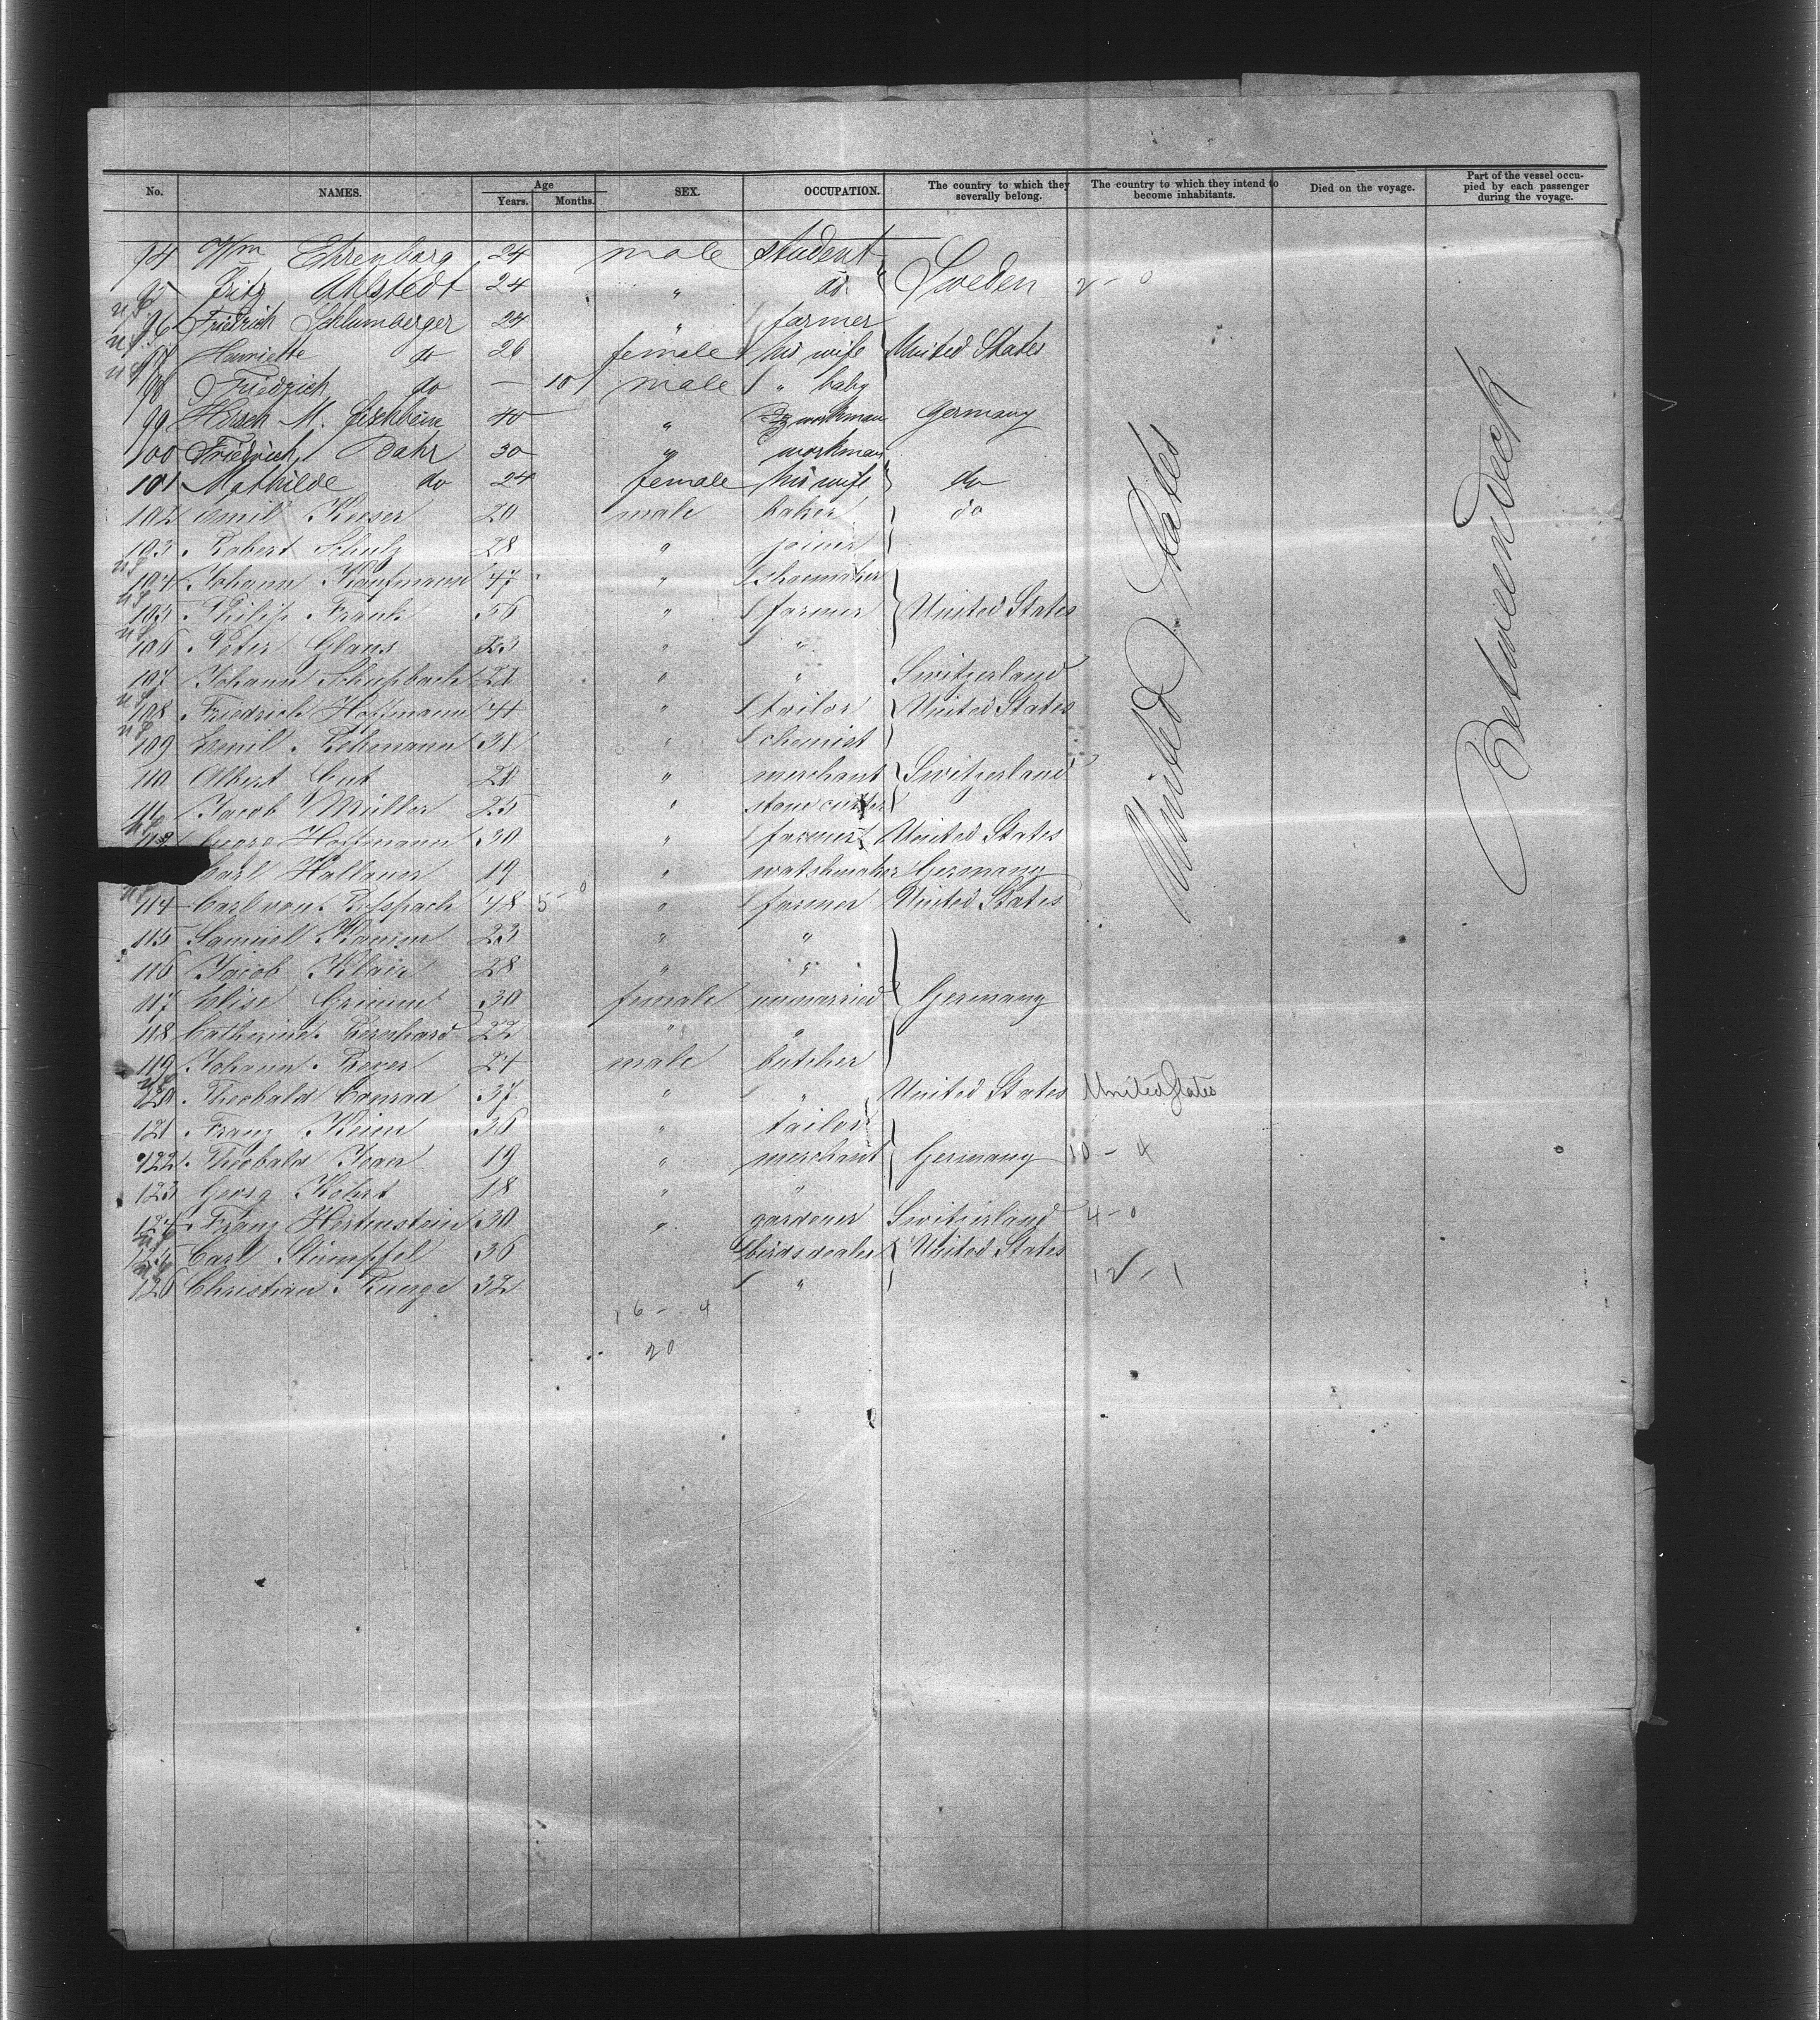 No. NAMES. Age Years. Months. SEX. OCCUPATION. The country to which they severally belong. The country to which they intend to become inhabitants. Died on the voyage. Part of the vessel occupied by each passenger during the voyage.
94 Wm Ehrenborg 24 male student
95 Fritz Ahlstedt 24 " do Sweden 2 - 0
96 Friedrich Schlumberger 24 " farmer
97 Henriette do 26 female his wife United States
98 Friedrich do — 10 male " baby
99 Hersch M. Fischbein 40 " workman Germany
100 Friedrich Bahr 30 " workman
101 Mathilde do 24 female his wife do
102 Emil Kieser 20 male baker do
103 Robert Schulz 28 " joiner
104 Johann Kaufmann 47 " shoemaker
105 Philip Frank 56 " farmer United States
106 Peter Glaus 23 " "
107 Johann Schupbach " " Switzerland
108 Friedrich Hoffmann " tailor United States
109 Emil Lehmann " chemist
110 Albert Gut 28 " merchant Switzerland
111 Jacob Müller 25 " stone cutter
Georg Hoffmann 30 " farmer United States
Carl Hallauer 19 " watchmaker Germany
114 Carl von 48 5 - 0 " farmer United States
115 Samuel 23 " "
116 Jacob Klair 28 " "
117 Elise Grimm 30 female unmarried Germany
118 Catherine Bernhard 22 " "
119 Johann 24 male butcher
120 Theobald Conrad 37 " " United States United States
121 Franz Keim 36 " tailor
122 Theobald 19 " merchant Germany 10 - 4
123 Georg 18 " "
124 Franz Hertenstein 30 " gardener Switzerland 4 - 0
125 Carl Stumpfel 36 birdsdealer United States
126 Christian Runge 32 " 12 - 1
16 - 4
20
United States
Between deck